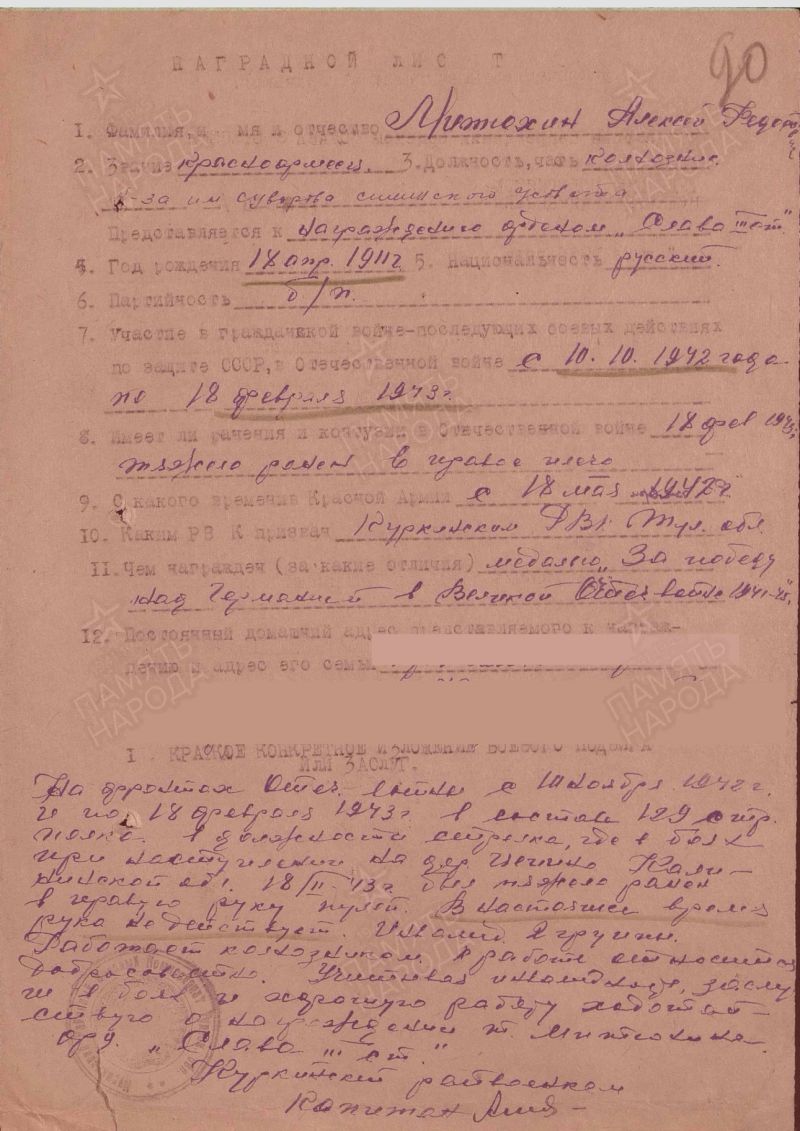 90
НАГРАДНОЙ ЛИСТ
1. Фамилия, имя и отчество Митюхин Алексей Федотович
2. Звание красноармеец. 3. Должность, часть колхозник
к-за им Суворова
Представляется к награждению орденом „Слава III ст."
4. Год рождения 18 апр. 1911 г. 5. Национальность русский.
6. Партийность б/п.
7. Участие в гражданской войне-последующих боевых действиях
по защите СССР, в Отечественной войне с 10.10.1942 года
по 18 февраля 1943 г.
8. Имеет ли ранения и контузии в Отечественной войне 18 фев 1943 г.
тяжело ранен в правое плечо
9. С какого времени в Красной Армии с 18 мая 1942 г.
10. Каким РВК призван Куркинским РВК Тул. обл.
11. Чем награжден (за какие отличия) медалью „За победу
над Германией в Великой Отеч войне 1941-45"
12. Постоянный домашний адрес представляемого к награж-
дению и адрес его семьи
I КРАТКОЕ КОНКРЕТНОЕ ИЗЛОЖЕНИЕ БОЕВОГО ПОДВИГА
ИЛИ ЗАСЛУГ.
На фронтах Отеч. войны с 10 ноября 1942 г.
и по 18 февраля 1943 г. в составе 129 стр.
полка в должности стрелка, где в боях
при наступлении на дер. Кали-
нинской обл. 18/II-43 г. был тяжело ранен
в правую руку пулей. В настоящее время
рука не действует. Инвалид 2 группы.
Работает колхозником. К работе относится
добросовестно. Учитывая инвалидность, заслу-
ги в боях и хорошую работу ходатай-
ствую о награждении т. Митюхина
орд. „Слава III ст."
Куркинский райвоенком
Капитан
ПАМЯТЬ НАРОДА